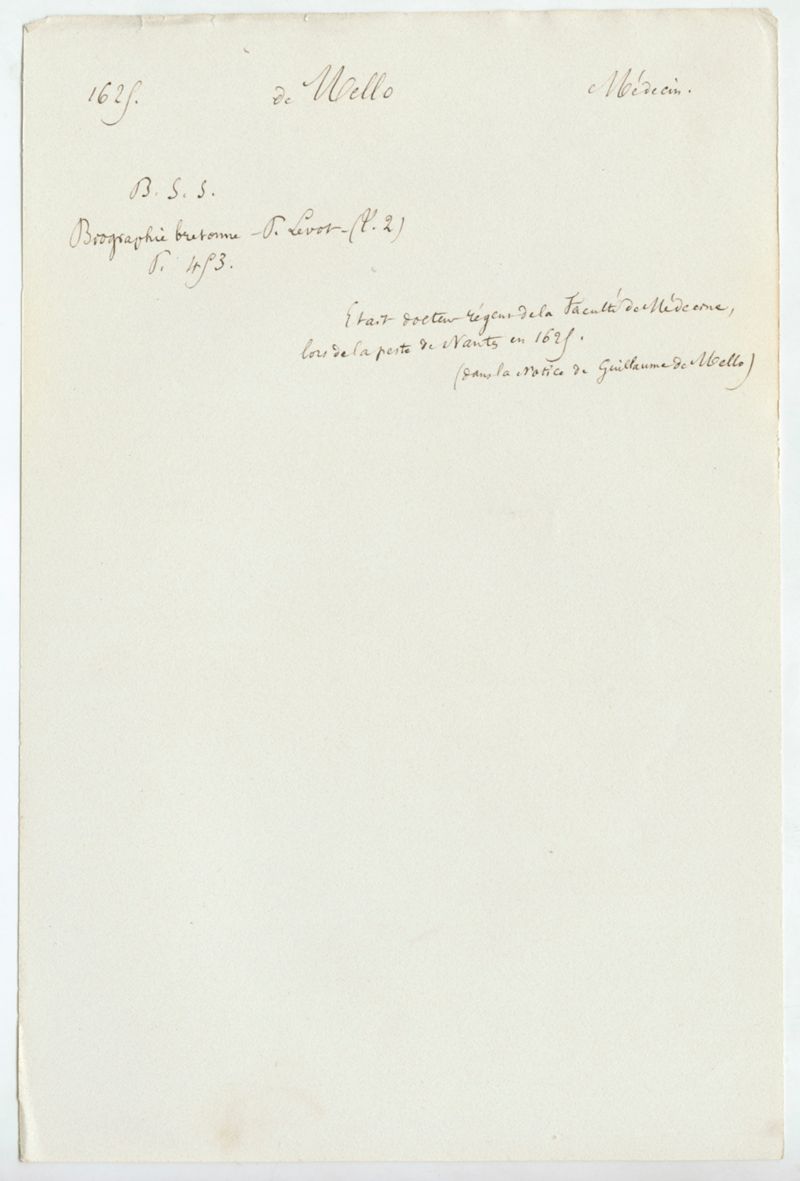 1625. de Mello Médecin.
B. S. S.
Biographie bretonne - P. Levot - (t. 2)
P. 453.
Etait docteur régent de la Faculté de Médecine,
lors de la peste de Nantes en 1625.
(dans la notice de Guillaume de Mello)